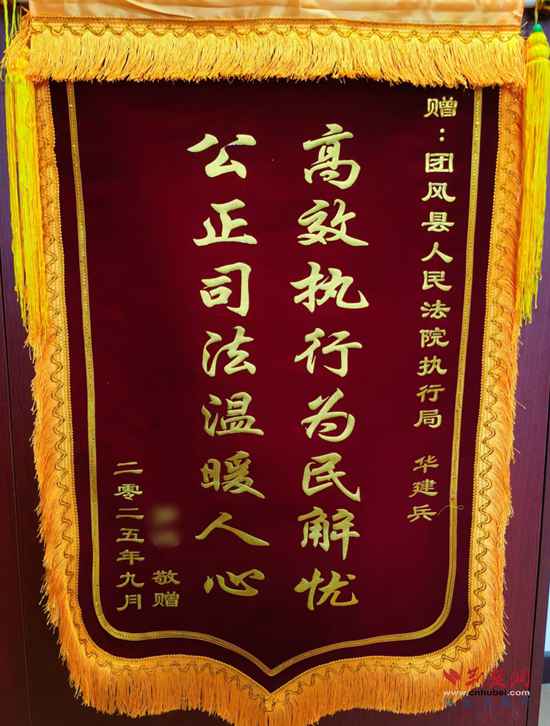 赠：团风县人民法院执行局 华建兵
高效执行为民解忧
公正司法温暖人心
敬赠
二零二五年九月
www.cnhubei.com